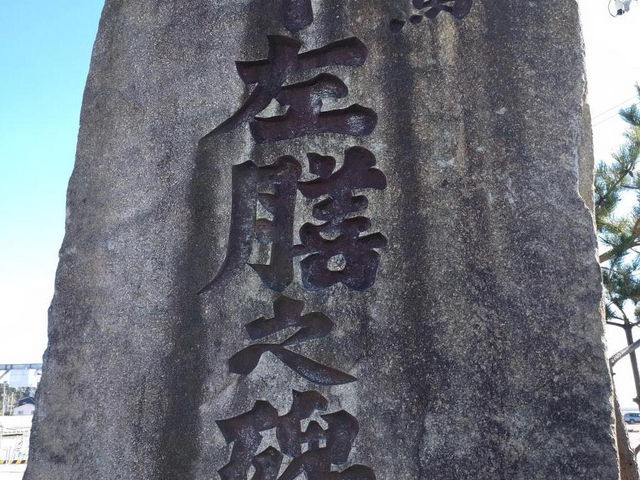 左膳之碑